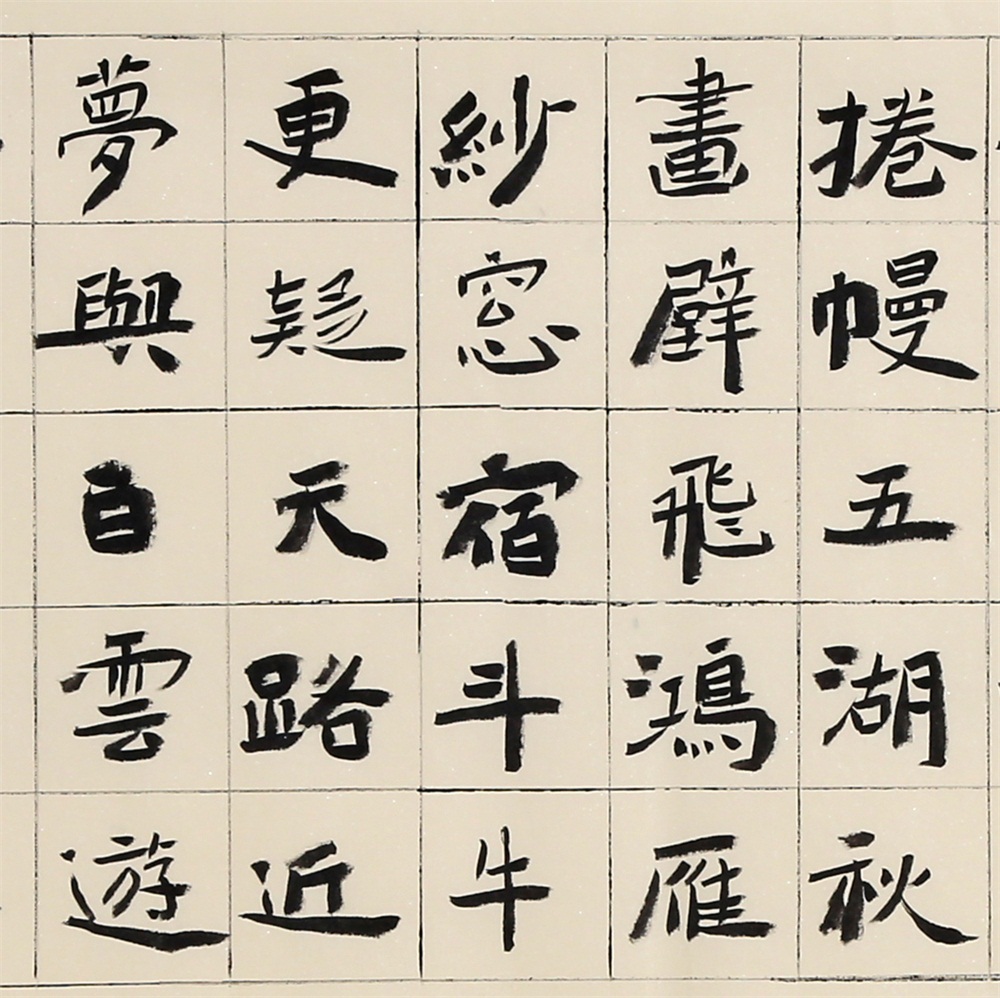 捲幔五湖秋
畫壁飛鴻雁
紗窓宿斗牛
更疑天路近
夢與白雲遊